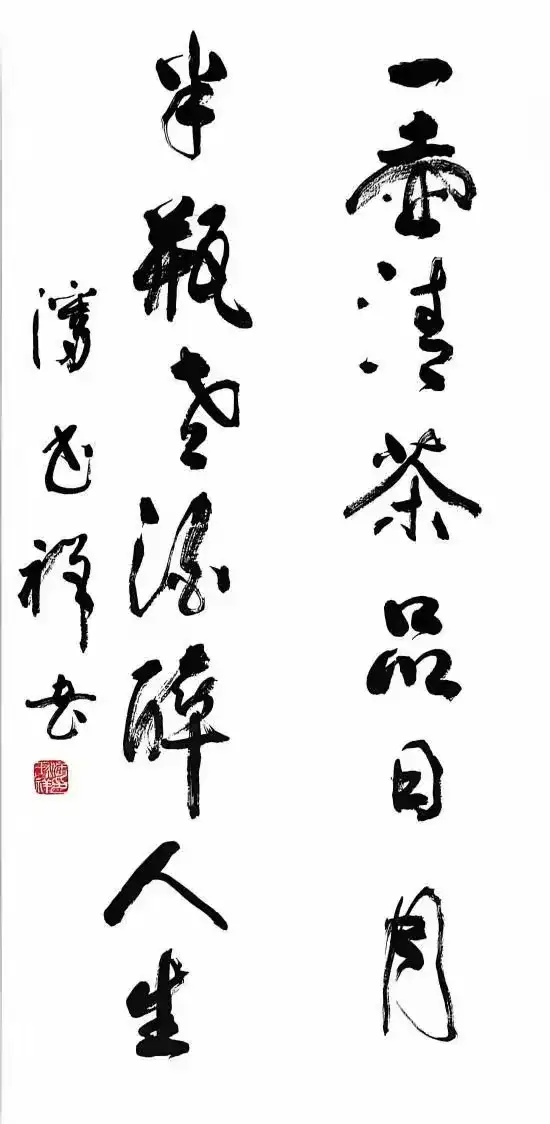 一壶清茶品日月
半瓶老酒醉人生
祥书